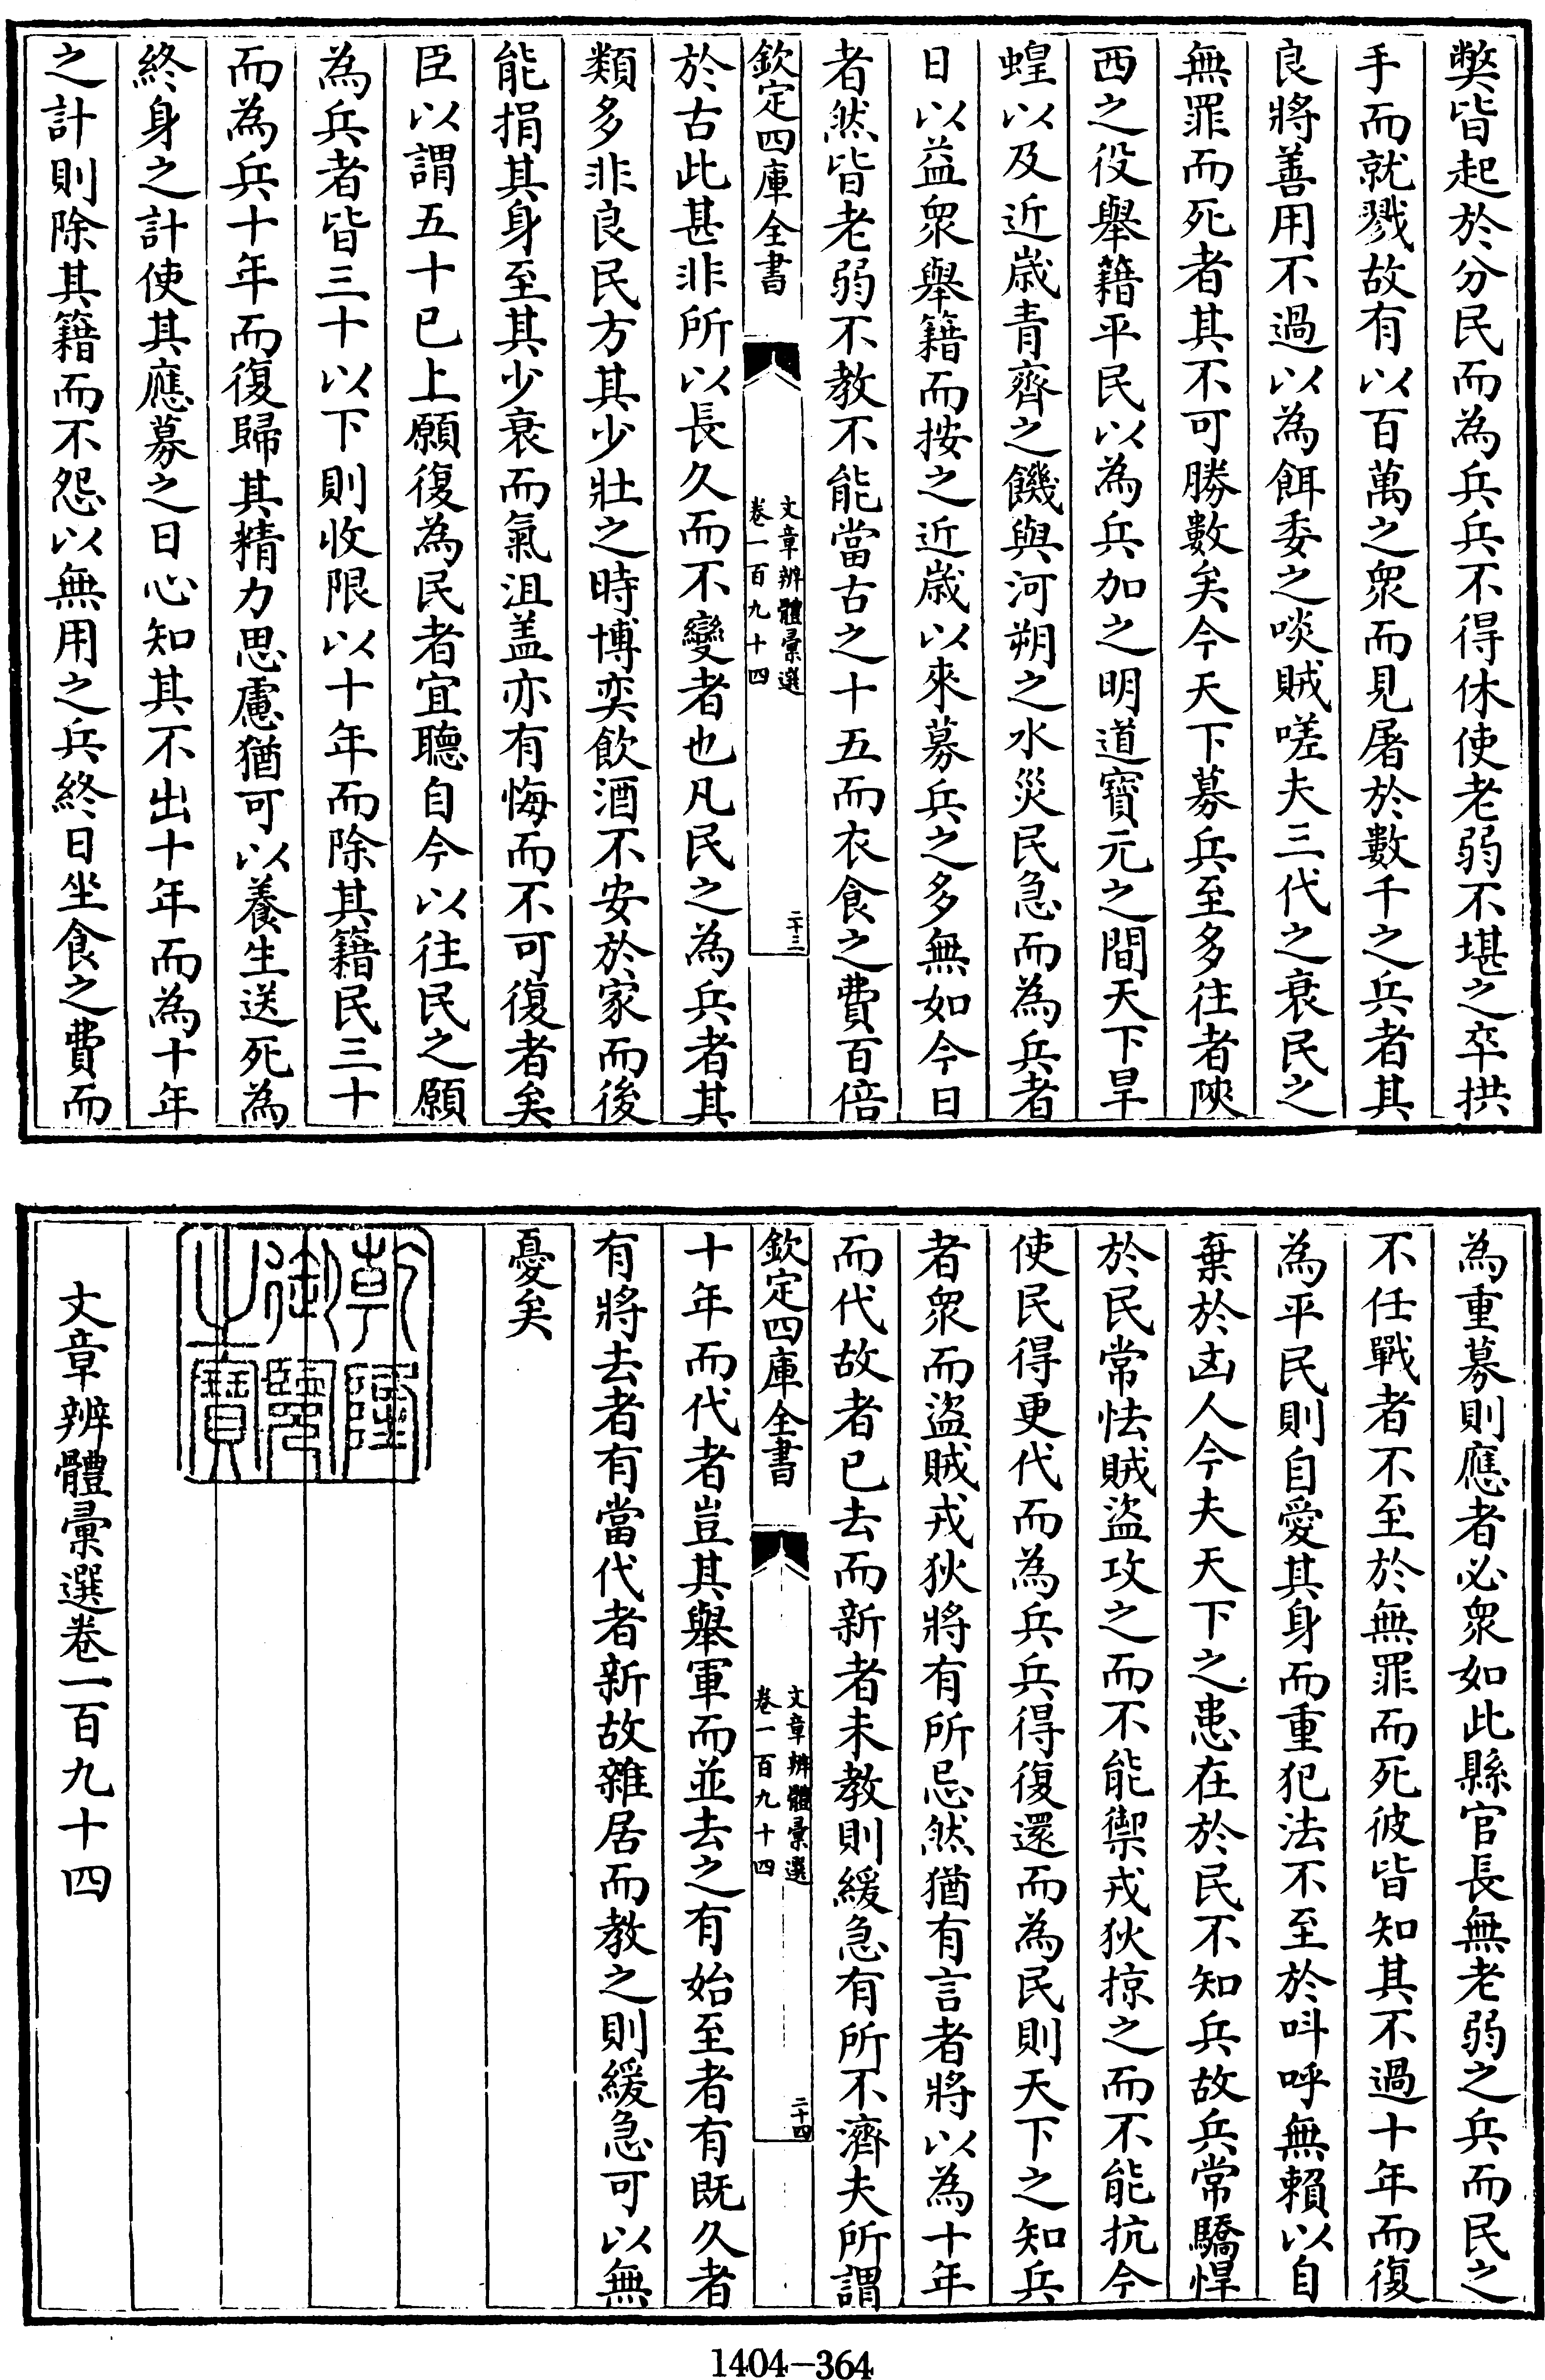 弊皆起於分民而為兵兵不得休使老弱不堪之卒拱
手而就戮故有以百萬之衆而見屠於數千之兵者其
良將善用不過以為餌委之啖賊嗟夫三代之衰民之
無罪而死者其不可勝數矣今天下募兵至多往者陜
西之役舉籍平民以為兵加之明道寳元之間天下旱
蝗以及近嵗青齊之饑與河朔之水災民急而為兵者
日以益衆舉籍而按之近嵗以來募兵之多無如今日
者然皆老弱不教不能當古之十五而衣食之費百倍
欽定四庫全書
文章辨體彚選
卷一百九十四
二十三
於古此甚非所以長久而不變者也凡民之為兵者其
類多非良民方其少壯之時博奕飲酒不安於家而後
能捐其身至其少衰而氣沮盖亦有悔而不可復者矣
臣以謂五十已上願復為民者宜聽自今以往民之願
為兵者皆三十以下則收限以十年而除其籍民三十
而為兵十年而復歸其精力思慮猶可以養生送死為
終身之計使其應募之日心知其不出十年而為十年
之計則除其籍而不怨以無用之兵終日坐食之費而
為重募則應者必衆如此縣官長無老弱之兵而民之
不任戰者不至於無罪而死彼皆知其不過十年而復
為平民則自愛其身而重犯法不至於叫呼無賴以自
棄於凶人今夫天下之患在於民不知兵故兵常驕悍
於民常怯賊盜攻之而不能禦戎狄掠之而不能抗今
使民得更代而為兵兵得復還而為民則天下之知兵
者衆而盜賊戎狄將有所忌然猶有言者將以為十年
而代故者已去而新者未教則緩急有所不濟夫所謂
欽定四庫全書
文章辨體彚選
卷一百九十四
二十四
十年而代者豈其舉軍而並去之有始至者有既久者
有將去者有當代者新故雜居而教之則緩急可以無
憂矣
乾隆
御覽
之寶
文章辨體彚選卷一百九十四
1404-364